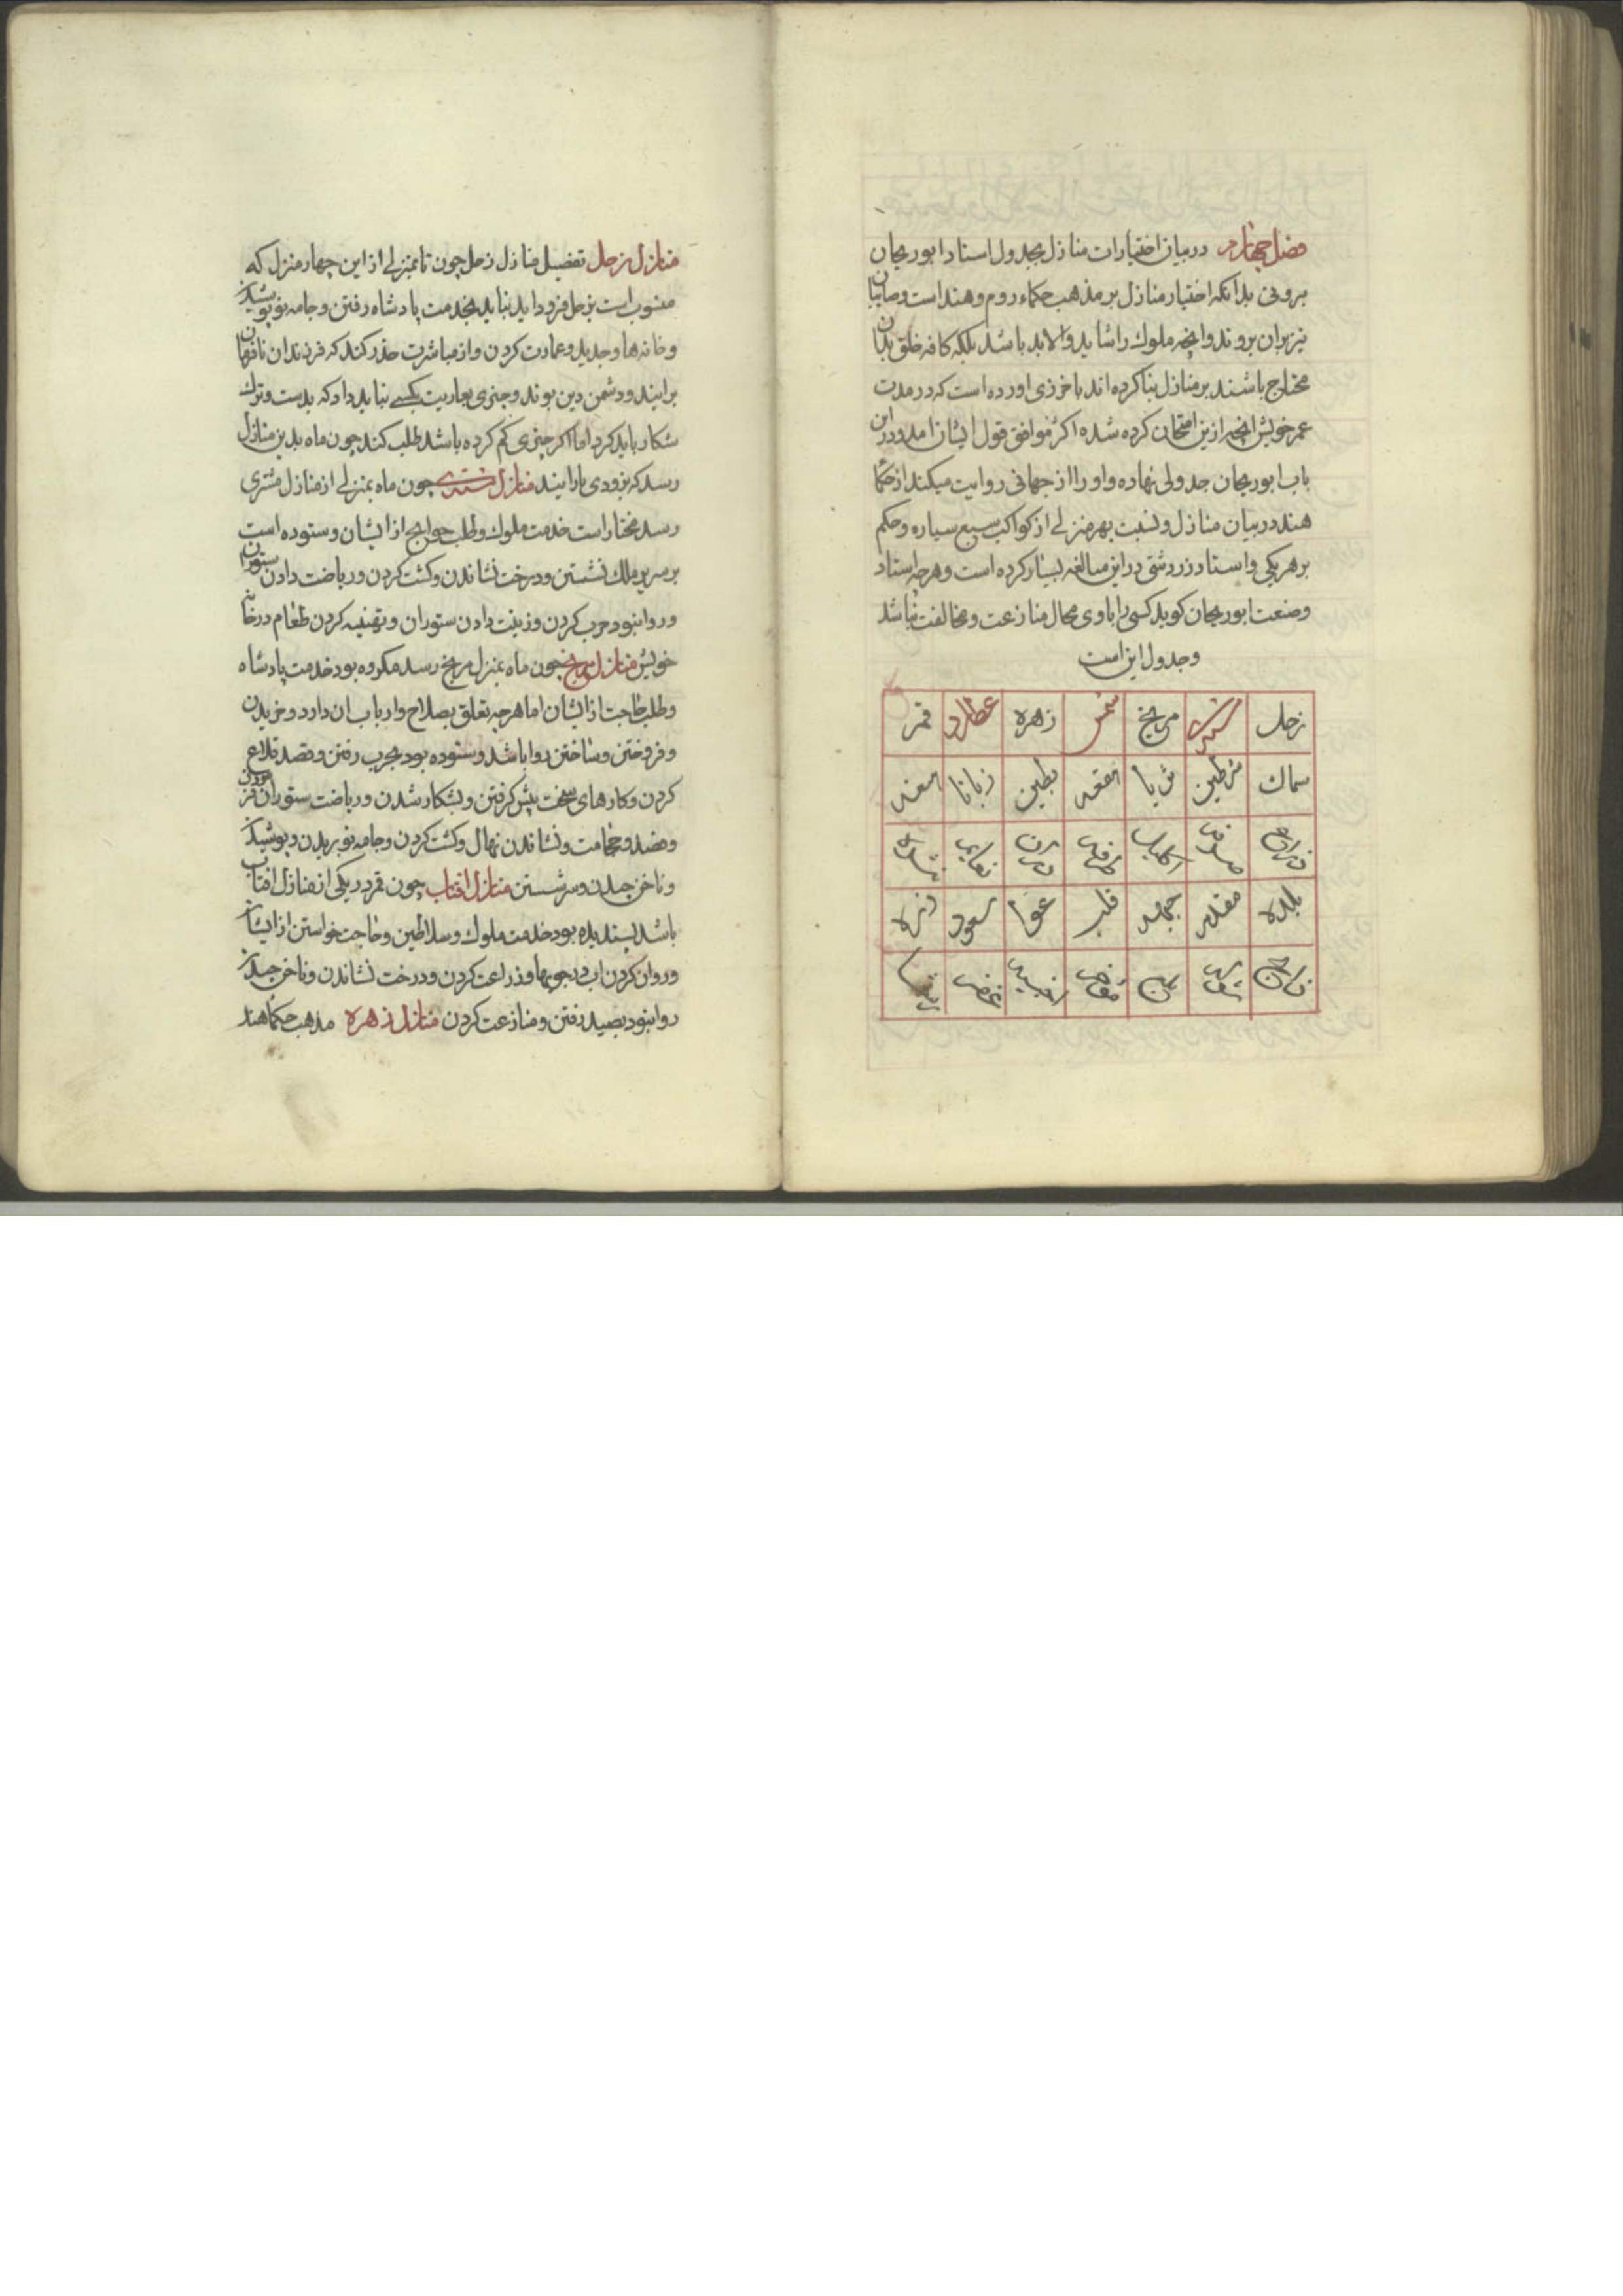 فصل چهارم در بیان اختیارات منازل بجدول استاد ابو ریحان
برونی بدانکه اختیار منازل بر مذهب حکماء روم و هند است و صابیان
نیز بران بروند وانچه ملوک را شاید والابد باشد بلکه کافه خلق بدان
محتاج باشند بر منازل بنا کرده اند باخرزی اورده است که در مدت
عمر خویش انچه ازین امتحان کرده شده اکثر موافق قول ایشان امد و درین
باب ابو ریحان جدولی نهاده و او را از جهانی روایت میکند از حکما
هند در بیان منازل و نسبت بهر منزلے از کواکب سبع سیاره و حکم
بر هر یکی و استاد زردشتی در این مبالغه بسیار کرده است و هرچه استاد
وصنعت ابو ریحان کوید کسی را باوی مجال منازعت و مخالفت نباشد
و جدول این است
زحل مشتری مریخ شمس زهره عطارد قمر
سماک شرطین ثریا هقعه بطین زبانا هنعه
ذراع صرفه اکلیل طرفه دبران نعایم
بلده مقدم جبهه قلب عوا سعود نثره
اخبیه
منازل زحل تفضیل منازل زحل چون تا بمنزلے از این چهار منزل که
منسوب است بزحل فرود اید نباید بخدمت پادشاه رفتن و جامه نو پوشیدن
و خانه ها و جدید و عمارت کردن و از مباشرت حذر کند که فرزندان نافرمان
برایند و دشمن دین بوند و چیزی بعاریت بکسے نباید داد که بدست و ترک
شکار باید کرد اما اکر چیزی کم کرده باشد طلب کند چون ماه بدین منازل
رسد که بزودی باز ایند منازل مشتری چون ماه بمنزلے از منازل مشتری
رسد مختار است خدمت ملوک و طلب حوایج از ایشان و ستوده است
بر سریر ملک نشستن و درخت نشاندن و کشت کردن و ریاضت دادن ستوران
و روا نبود حرب کردن و زینت دادن ستوران و تهنیه کردن طعام در خانه
خویش منازل مریخ چون ماه بمنزل مریخ رسد مکروه بود خدمت پادشاه
و طلب حاجت از ایشان اما هرچه تعلق بصلاح و ارباب ان دارد و خریدن
و فروختن و ساختن روا باشد و ستوده بود بحرب رفتن و قصد قلاع
کردن و کارهای سخت پیش کرفتن و بشکار شدن و ریاضت ستوران فرمودن
و فصد و حجامت و نشاندن نهال و کشت کردن و جامه نو بریدن و پوشیدن
و ناخن چیدن و سر شستن منازل افتاب چون قمر در یکی از منازل افتاب
باشد پسندیده بود خدمت ملوک و سلاطین و حاجت خواستن از ایشان
و روان کردن اب در جویها و زراعت کردن و درخت نشاندن و ناخن چیدن
روا نبود بصید رفتن و منازعت کردن منازل زهره مذهب حکما هند